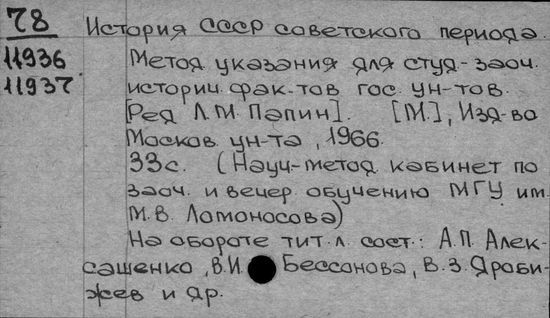 78 История СССР советского периода.
11936 Метод. указания для студ-заоч.
11937 историч. фак-тов гос. ун-тов.
[Ред Л.М. Папин]. [М.], Изд-во
Москов. ун-та, 1966.
33с. (Науч-метод. кабинет по
заоч. и вечер. обучению МГУ им.
М.В. Ломоносова)
На обороте тит. л. сост.: А.П. Алек-
сашенко, В.И. Бессонова, В.З. Дроби-
жев и др.